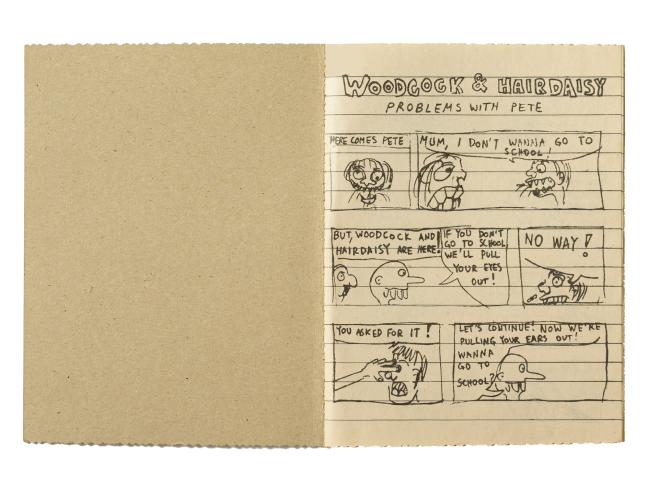 WOODCOCK & HAIRDAISY
PROBLEMS WITH PETE
HERE COMES PETE
MUM, I DON'T WANNA GO TO
SCHOOL!
BUT, WOODCOCK AND
HAIRDAISY ARE HERE!
IF YOU DON'T
GO TO SCHOOL
WE'LL PULL
YOUR EYES
OUT!
NO WAY!
YOU ASKED FOR IT!
LET'S CONTINUE! NOW WE'RE
PULLING YOUR EARS OUT!
WANNA
GO TO
SCHOOL?